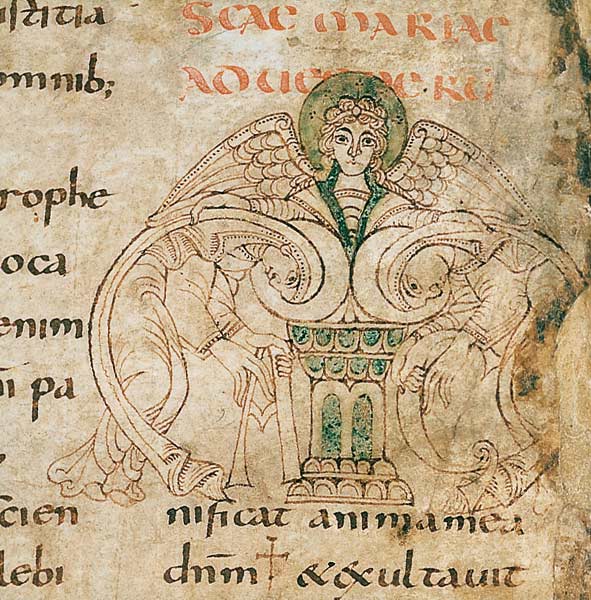 stitia
omnib;
rophe
oca
enim
pa
cien
lebi
SCAE MARIAE
AD UESPERŪ
nificat anima mea
dnm̄ & exultauit